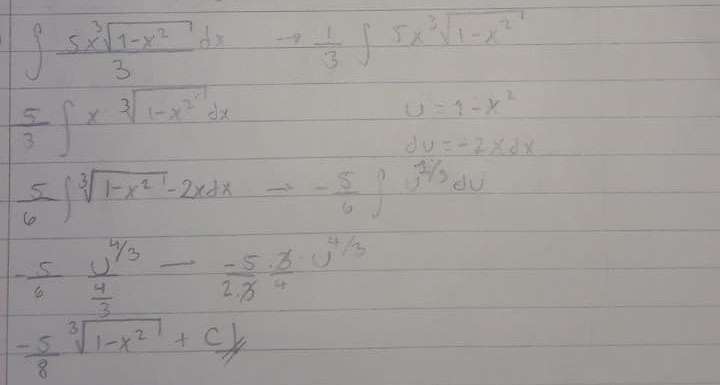 ∫ 5x∛(1-x²) dx / 3 → 1/3 ∫ 5x ∛(1-x²)
5/3 ∫ x ∛(1-x²) dx u = 1-x²
du = -2x dx
5/6 ∫ ∛(1-x²) -2xdx → -5/6 ∫ u^(1/3) du
-5/6 u^(4/3) / (4/3) — -5/(2·3) · 3/4 · u^(4/3)
-5/8 ∛(1-x²) + C